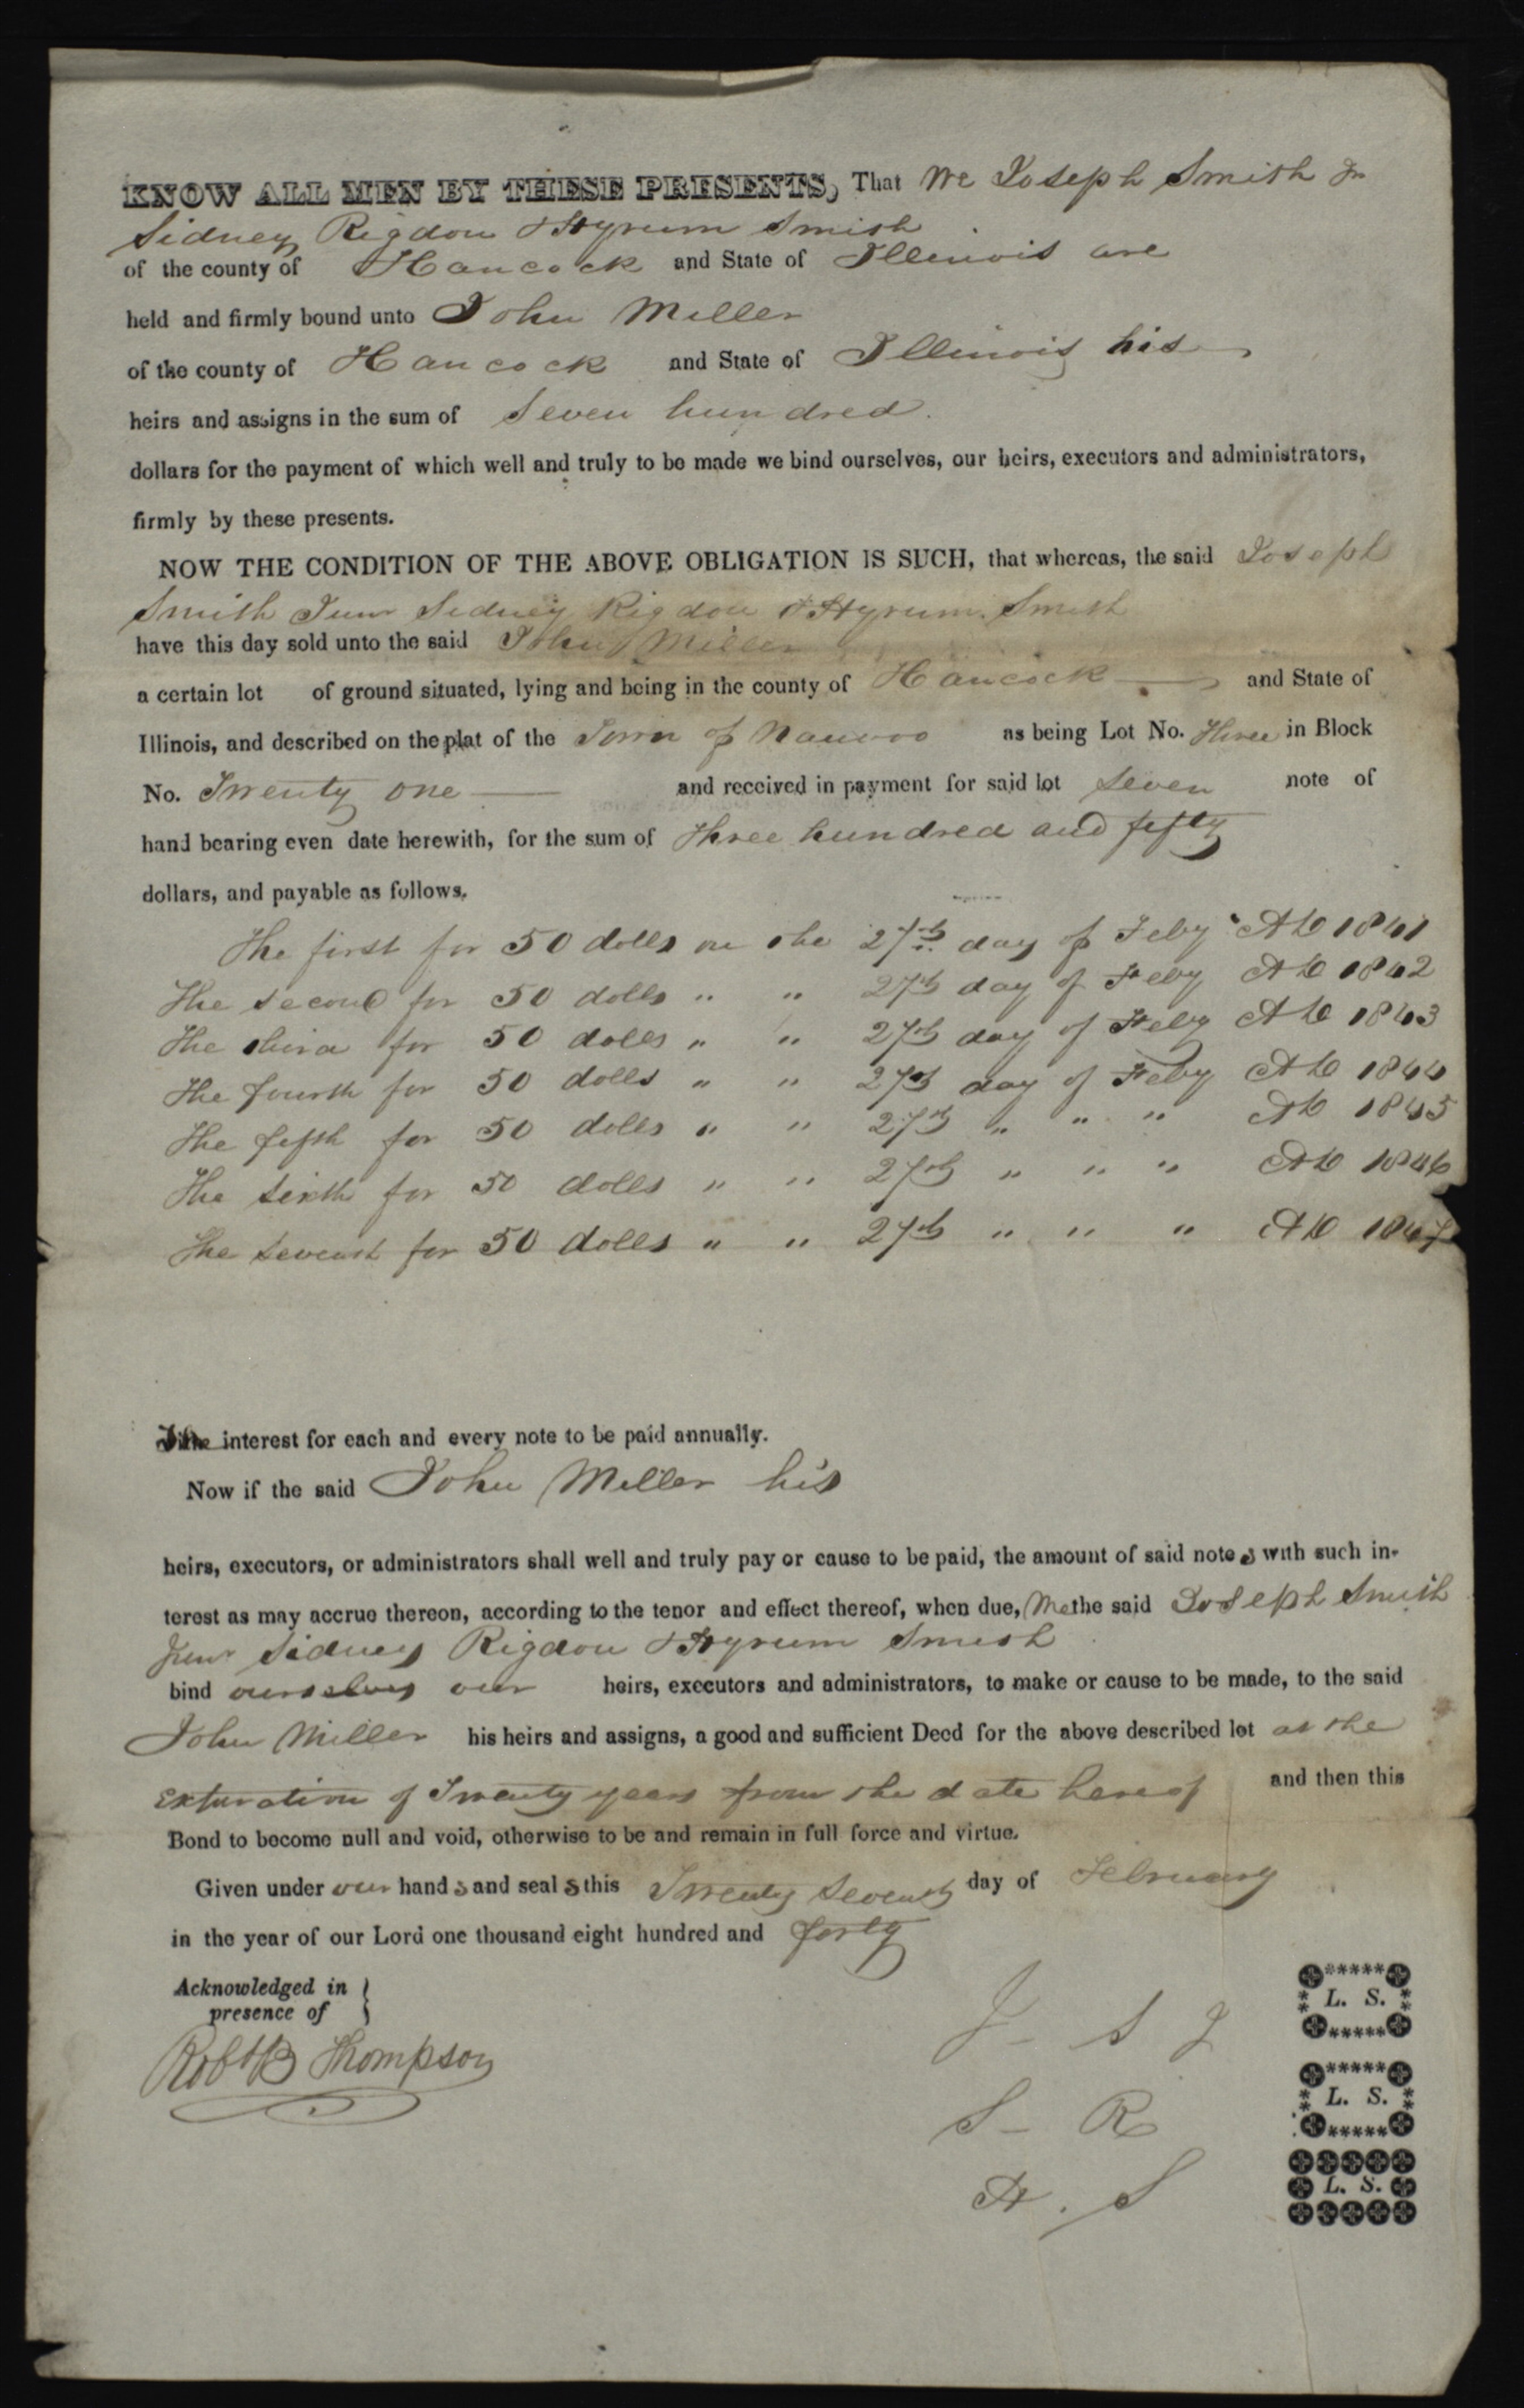 KNOW ALL MEN BY THESE PRESENTS, That We Joseph Smith Jr
Sidney Rigdon & Hyrum Smith
of the county of Hancock and State of Illinois are
held and firmly bound unto John Miller
of the county of Hancock and State of Illinois his
heirs and assigns in the sum of Seven hundred.
dollars for the payment of which well and truly to be made we bind ourselves, our heirs, executors and administrators,
firmly by these presents.
NOW THE CONDITION OF THE ABOVE OBLIGATION IS SUCH, that whereas, the said Joseph
Smith Junr Sidney Rigdon & Hyrum Smith
have this day sold unto the said John Miller
a certain lot of ground situated, lying and being in the county of Hancock and State of
Illinois, and described on the plat of the Town of Nauvoo as being Lot No. Three in Block
No. Twenty one and received in payment for said lot Seven note of
hand bearing even date herewith, for the sum of Three hundred and fifty
dollars, and payable as follows.
The first for 50 dolls on the 27th day of Feby AD 1841
The second for 50 dolls " " 27th day of Feby AD 1842
The third for 50 dolls " " 27th day of Feby AD 1843
The fourth for 50 dolls " " 27th day of Feby AD 1844
The fifth for 50 dolls " " 27th " " " AD 1845
The sixth for 50 dolls " " 27th " " " AD 1846
The seventh for 50 dolls " " 27th " " " AD 1847
interest for each and every note to be paid annually.
Now if the said John Miller his
heirs, executors, or administrators shall well and truly pay or cause to be paid, the amount of said notes with such in-
terest as may accrue thereon, according to the tenor and effect thereof, when due, We the said Joseph Smith
Junr Sidney Rigdon & Hyrum Smith
bind ourselves our heirs, executors and administrators, to make or cause to be made, to the said
John Miller his heirs and assigns, a good and sufficient Deed for the above described lot at the
expiration of Twenty years from the date hereof and then this
Bond to become null and void, otherwise to be and remain in full force and virtue.
Given under our hands and seals this Twenty Seventh day of February
in the year of our Lord one thousand eight hundred and forty
Acknowledged in
presence of
Robt B Thompson
J- S J L. S.
S- R L. S.
H. S L. S.